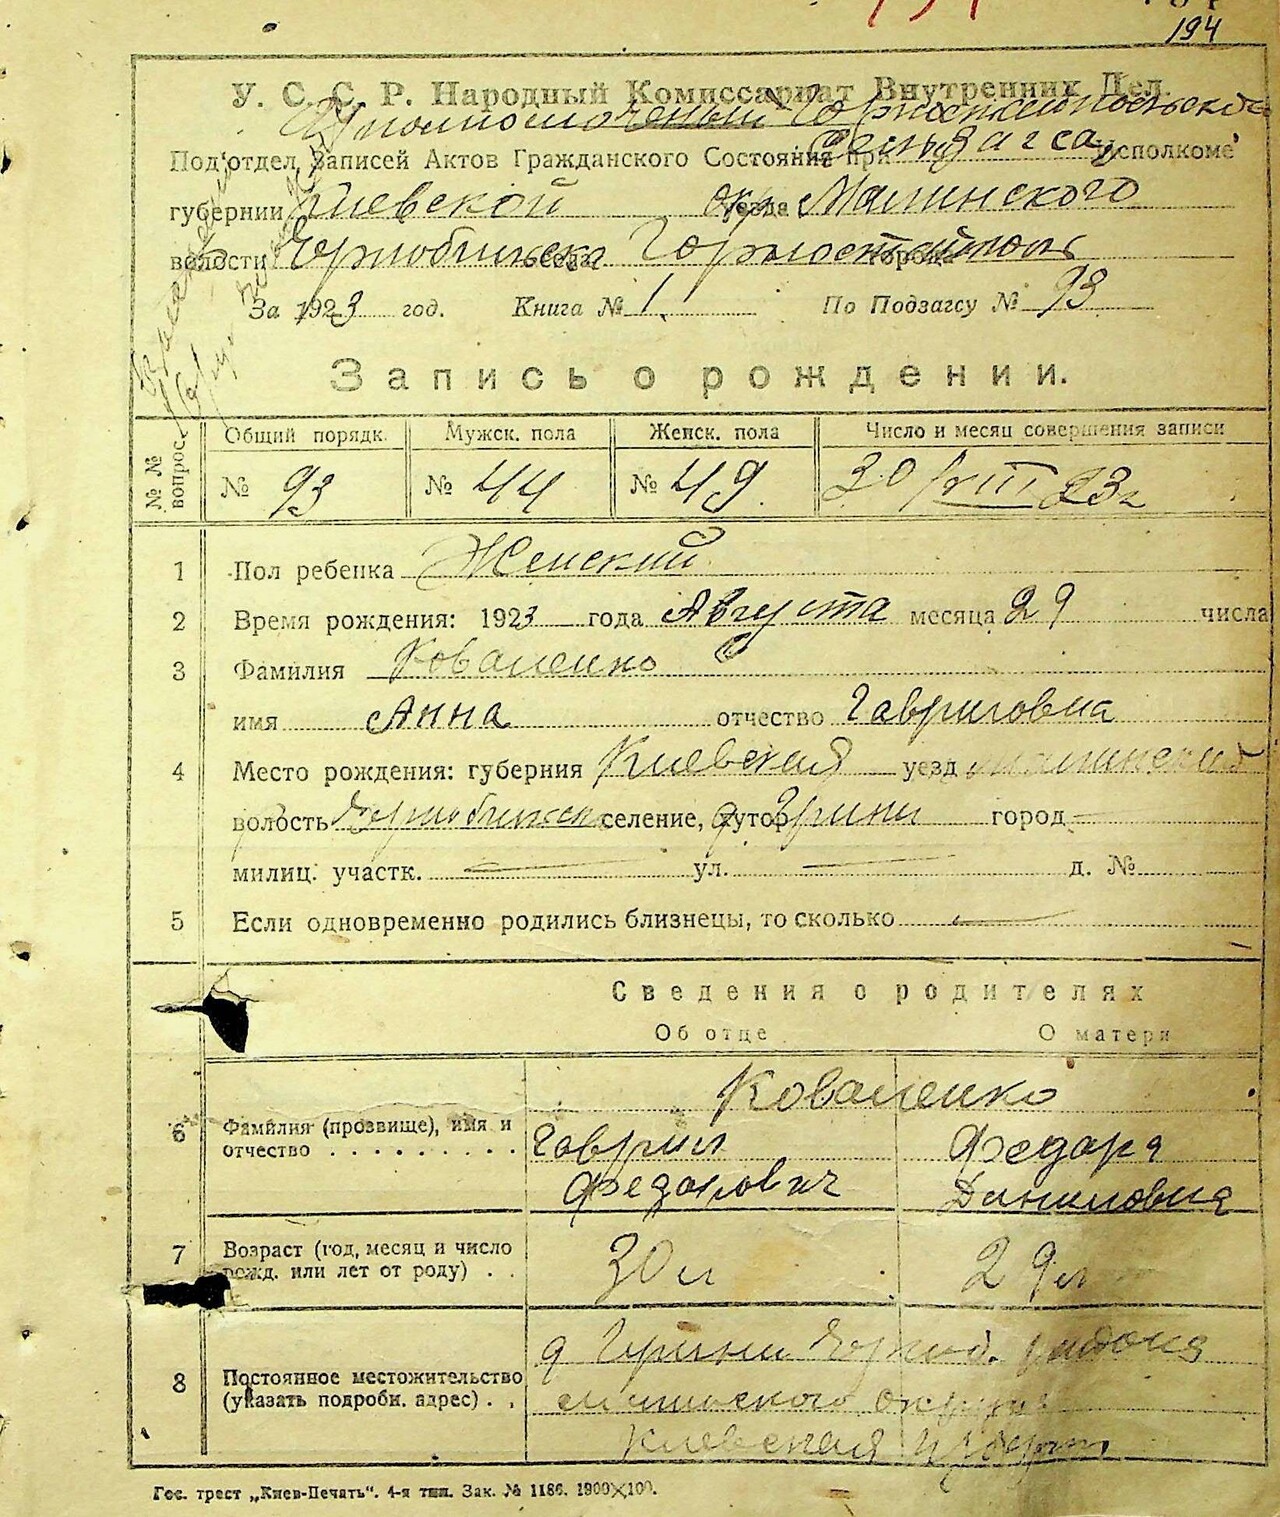 194
У. С. С. Р. Народный Комиссариат Внутренних Дел.
Уполномоченый Горностайпольска
Сельзагса
Подотдел Записей Актов Гражданского Состояния при исполкоме
губернии Киевской уезда окр Малинского
волости Чорнобильск села Горностайполь города
За 1923 год. Книга № 1. По Подзагсу № 93
Запись о рождении.
№ № вопрос. Общий порядк. Мужск. пола Женск. пола Число и месяц совершения записи
№ 93 № 44 № 49. 30/VIII 23 г
1 Пол ребенка Женский
2 Время рождения: 1923 года Августа месяца 29 числа
3 Фамилия Коваленко
имя Анна отчество Гавриловна
4 Место рождения: губерния Киевская уезд Малинский
волость Чорнобильск селение, хутор Грини город
милиц. участк. — ул. — д. №
5 Если одновременно родились близнецы, то сколько —
Сведения о родителях
Об отце О матери
Коваленко
6 Фамилия (прозвище), имя и отчество . . . . . . . . . Гаврил Федорович Федора Даниловна
7 Возраст (год, месяц и число рожд. или лет от роду) . . 30 л 29 л
8 Постоянное местожительство (указать подробн. адрес) . . д Грини Чорноб. района
Малинского округа
Киевская губерн
Гос. трест „Киев-Печать". 4-я тип. Зак. № 1186. 1900×100.